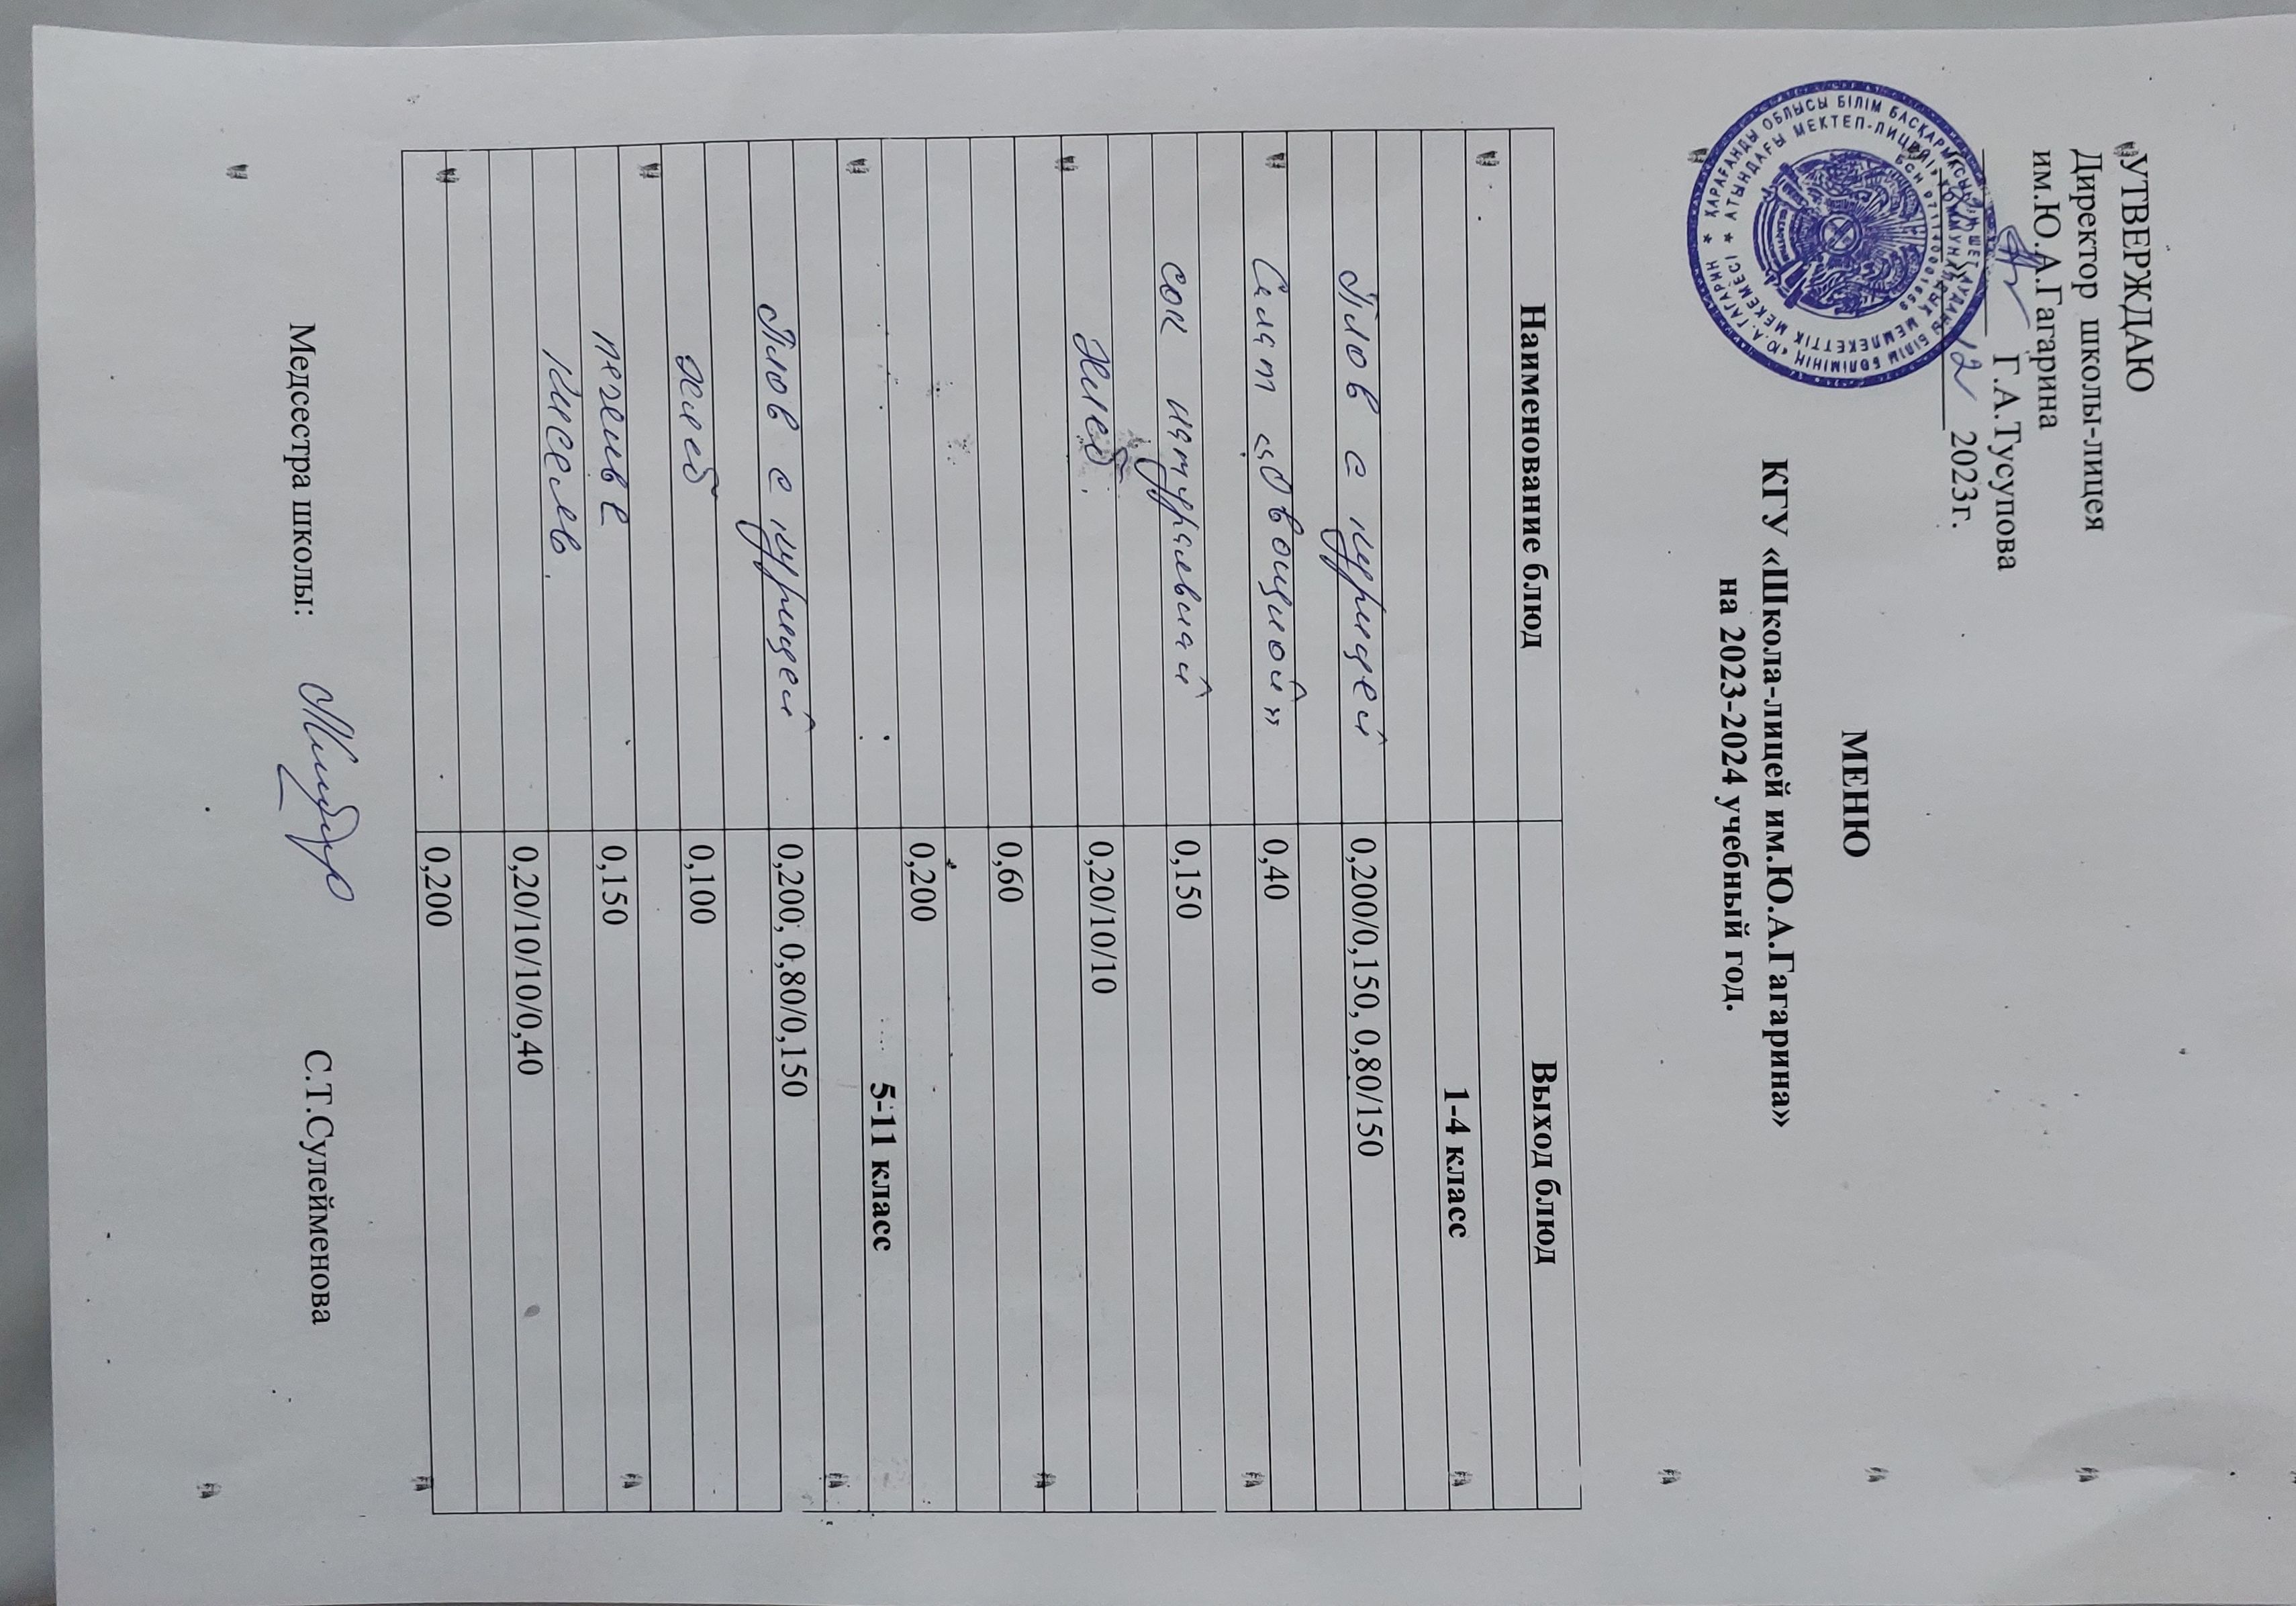 УТВЕРЖДАЮ
Директор школы-лицея
им.Ю.А.Гагарина
Г.А.Тусупова
12 2023г.
МЕНЮ
КГУ «Школа-лицей им.Ю.А.Гагарина»
на 2023-2024 учебный год.
Наименование блюд Выход блюд
1-4 класс
Плов с курицей 0,200/0,150, 0,80/150
Салат «Овощной» 0,40
сок натуральный 0,150
Хлеб. 0,20/10/10
0,60
0,200
5-11 класс
Плов с курицей 0,200; 0,80/0,150
хлеб 0,100
печенье 0,150
Кисель. 0,20/10/10/0,40
0,200
Медсестра школы: С.Т.Сулейменова